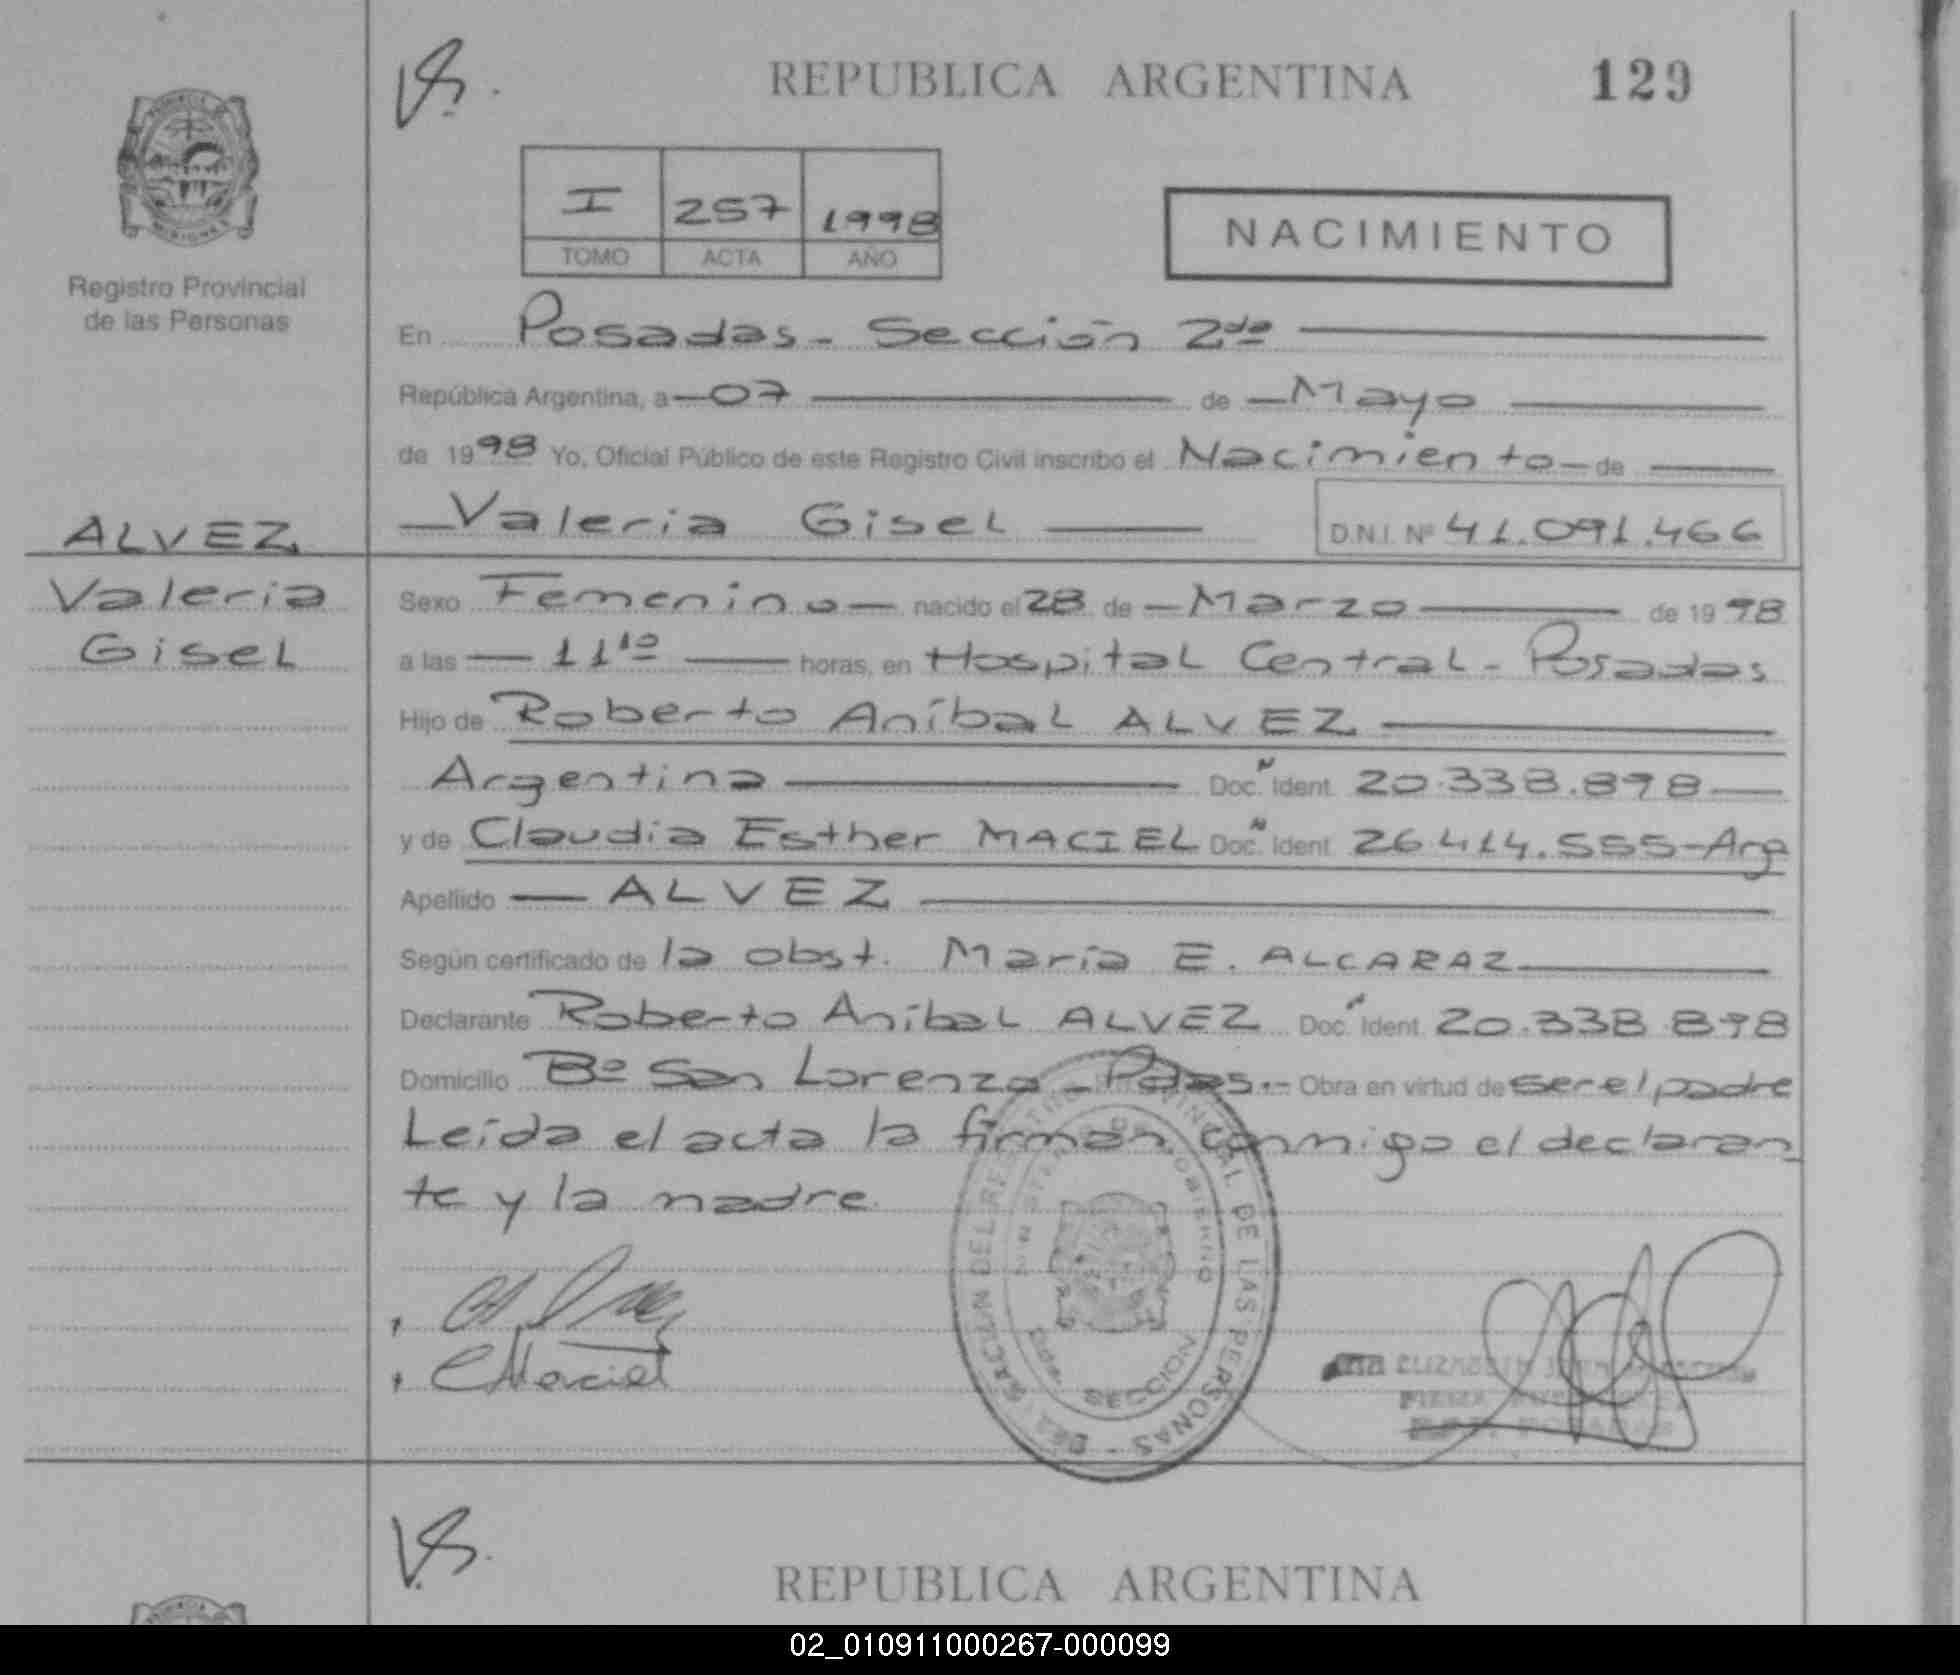 REPUBLICA ARGENTINA 129
I 257 1998
TOMO ACTA AÑO
NACIMIENTO
Registro Provincial
de las Personas
En Posadas - Sección 2da
República Argentina, a 07 de Mayo
de 1998 Yo, Oficial Público de este Registro Civil inscribo el Nacimiento de
Valeria Gisel D.N.I. Nº 41.091.466
ALVEZ
Valeria
Gisel
Sexo Femenino nacido el 28 de Marzo de 1998
a las 11 10 horas, en Hospital Central - Posadas
Hijo de Roberto Aníbal ALVEZ
Argentina Doc. Ident. 20.338.898
y de Claudia Esther MACIEL Doc. Ident. 26.414.555-Arg
Apellido ALVEZ
Según certificado de la obst. María E. ALCARAZ
Declarante Roberto Aníbal ALVEZ Doc. Ident. 20.338.898
Domicilio Bº San Lorenzo - Pdas.- Obra en virtud de ser el padre
Leída el acta la firman conmigo el declaran-
te y la madre.
CMaciel
DE LAS PERSONAS
SECCION
REPUBLICA ARGENTINA
02_010911000267-000099